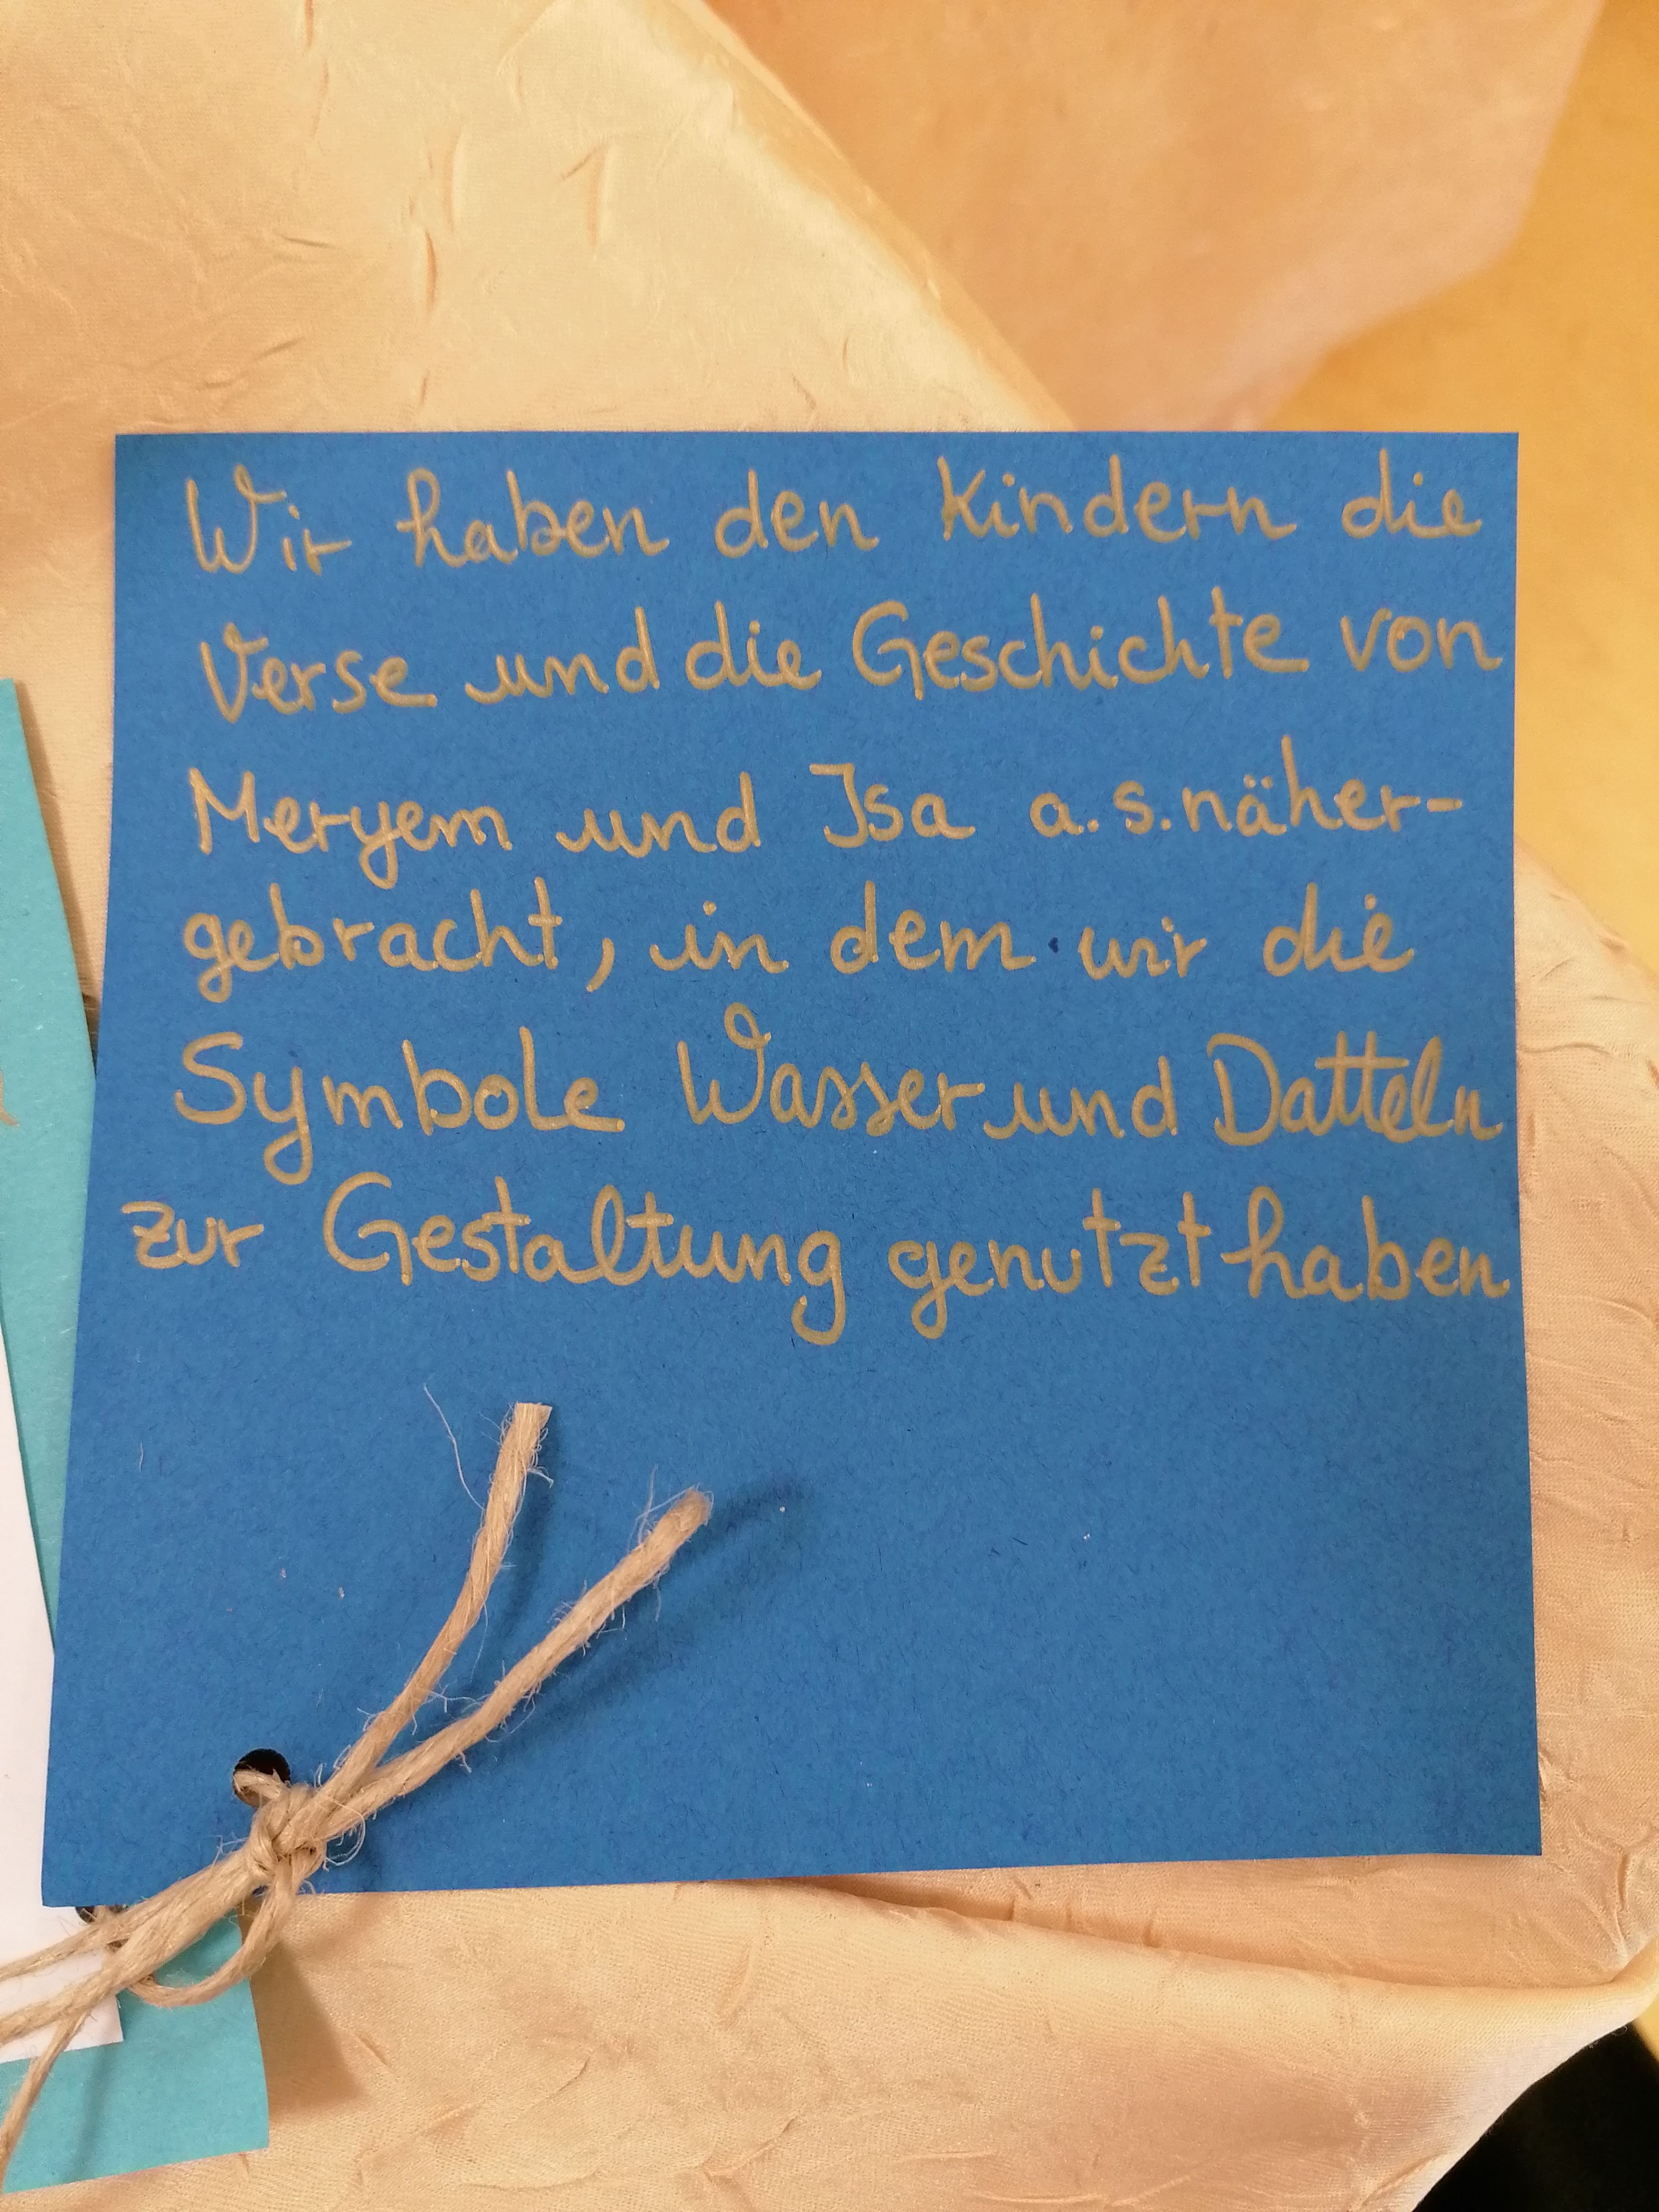 Wir haben den Kindern die
Verse und die Geschichte von
Meryem und Isa a.s. näher-
gebracht, in dem wir die
Symbole Wasser und Datteln
zur Gestaltung genutzt haben